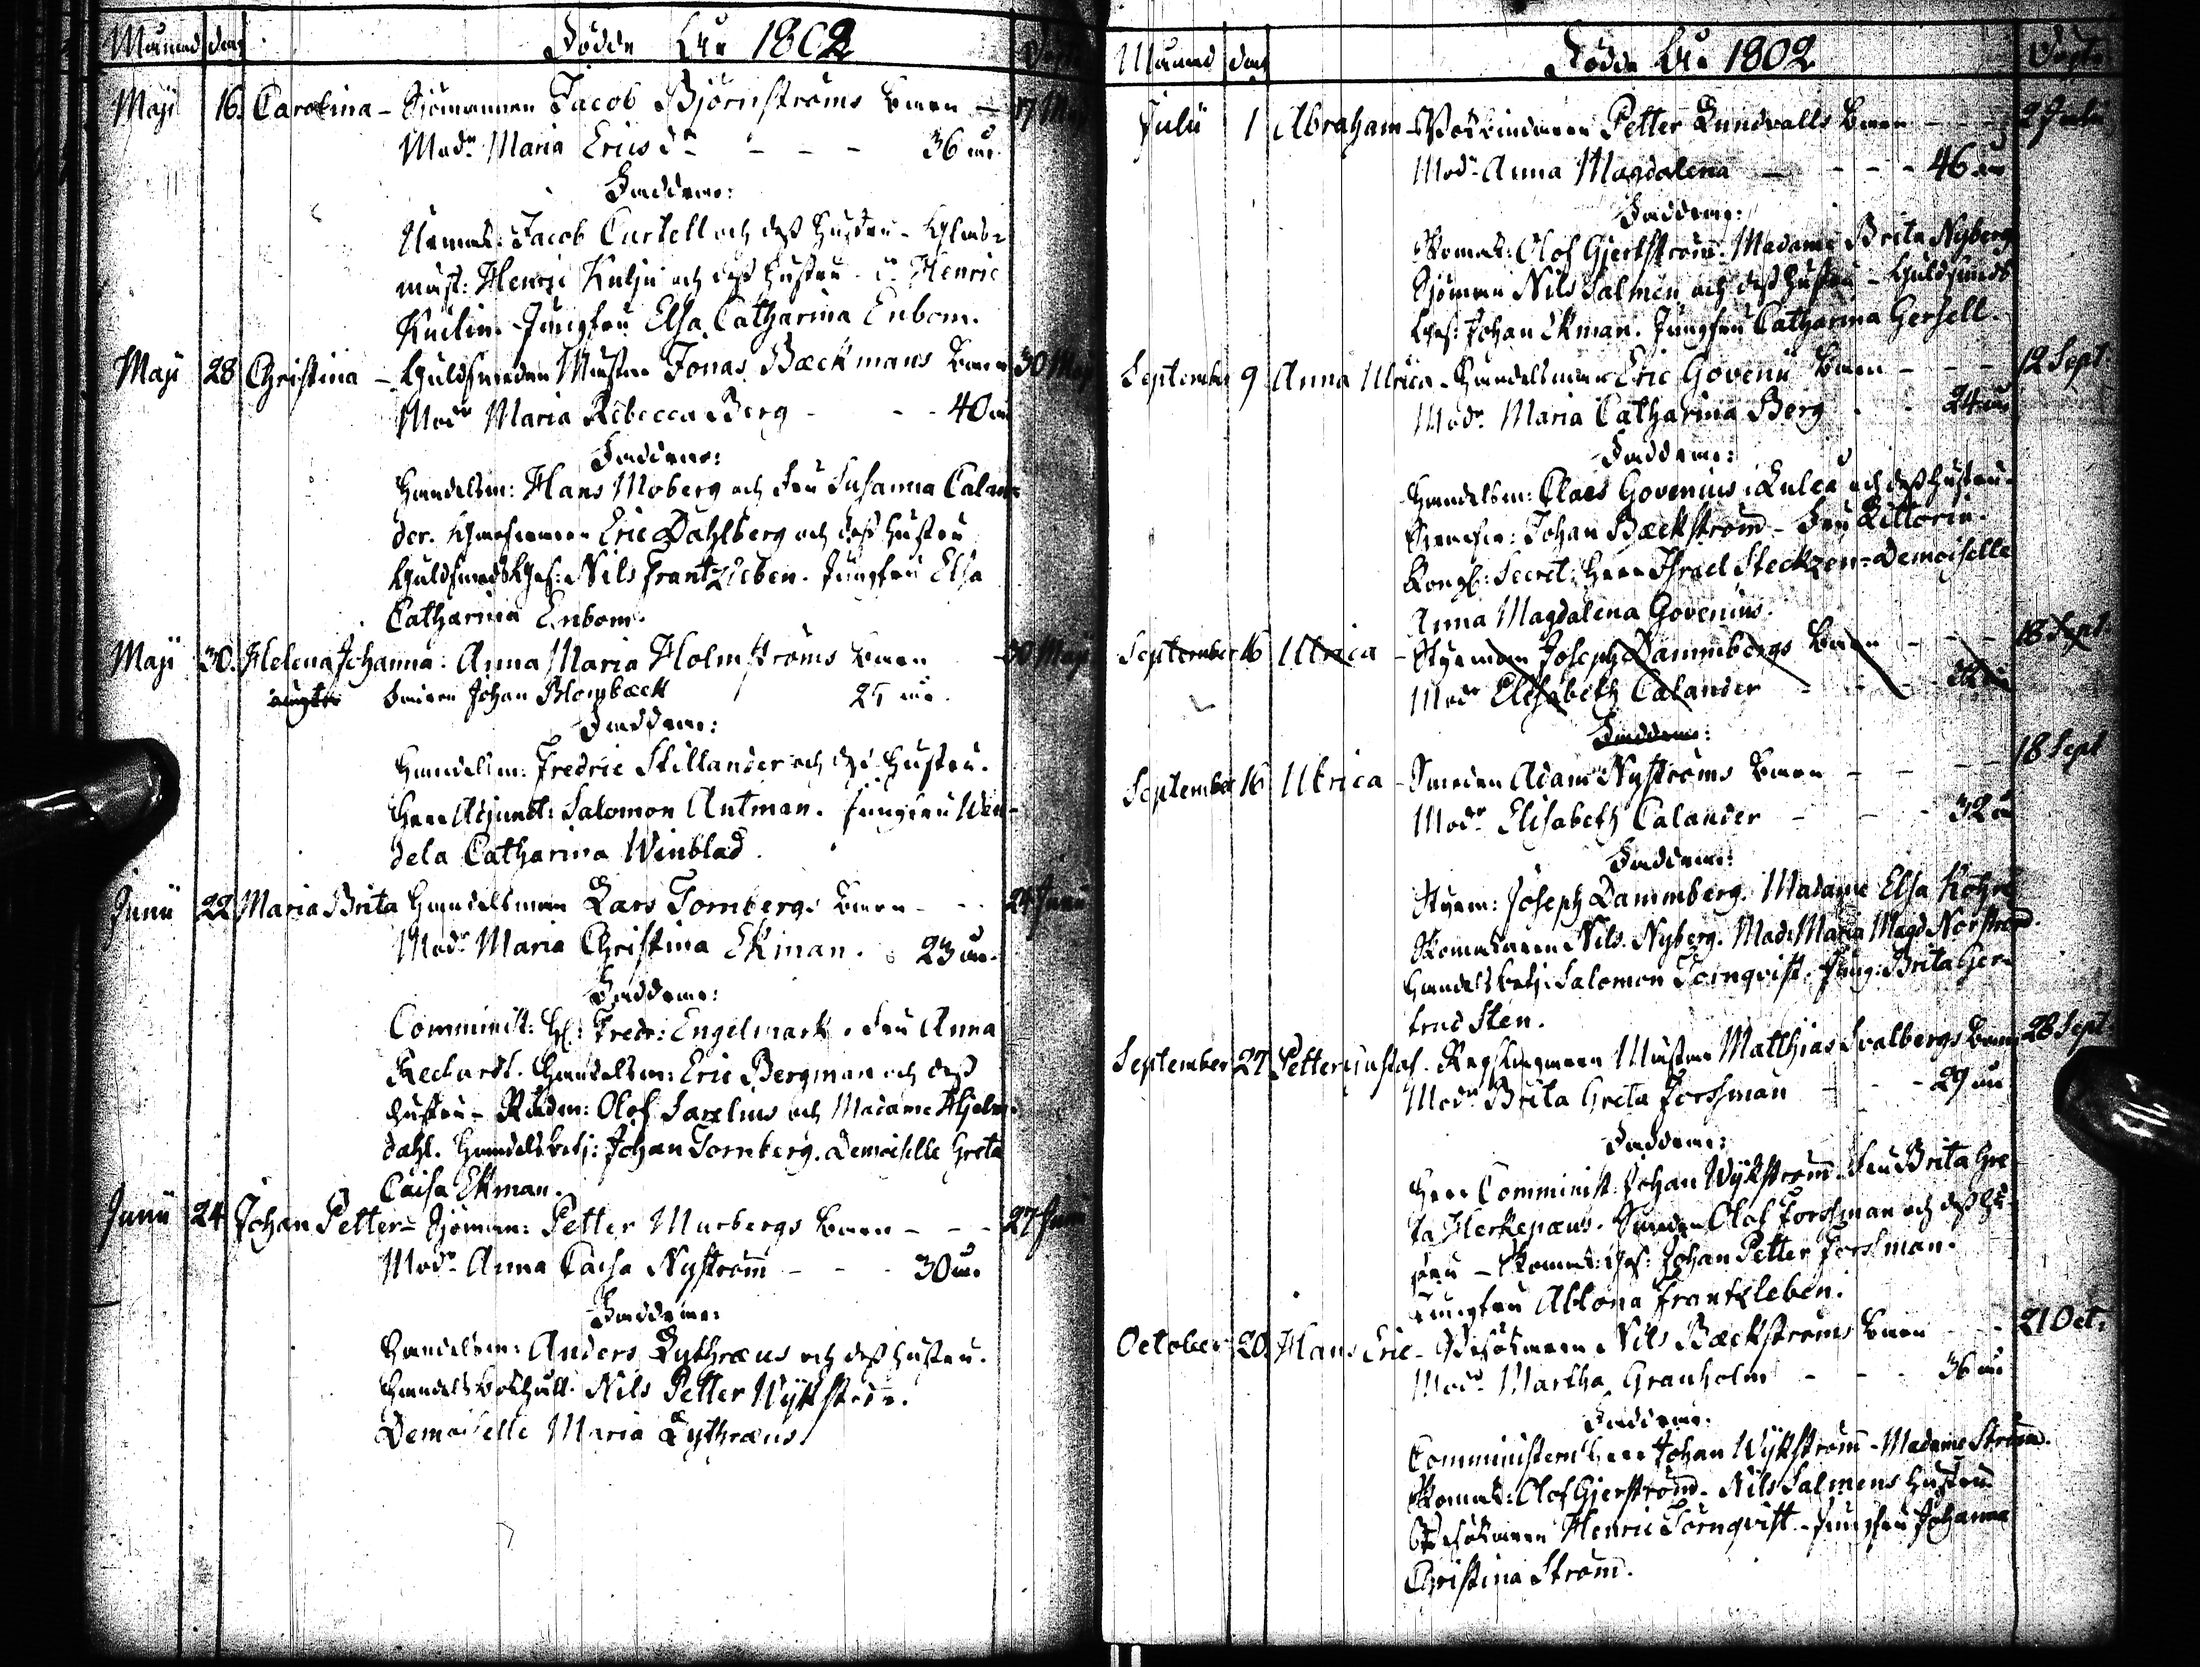 Månad dag Födde åhr 1802 Döpte
Maji 16. Carolina - Sjömannen Jacob Björnströms barn - 17 Maj
Modr Maria Ericsdr - - - 36 år.
Faddrar:
Jacob Curtell och dess hustru -
mäst: Henric och dess hustru - Henric
Jungfru Elsa Catharina Enbom.
Maji 28 Christina - Guldsmeden Mäster Jonas Bæckmans barn 30 Maj
Modr Maria Rebecca Berg - - - 40 år
Faddrar:
Handelsm: Hans Moberg och Fru Susanna Calan-
der. Eric Dahlberg och dess hustru
Guldsmeds Ges: Nils Frantzleben. Jungfru Elsa
Catharina Enbom.
Maji 30. Helena Johanna: Anna Maria Holmströms barn 30 Maji
oägta Fadren Johan Blombæck 25 år.
Faddrar:
Handelsm: Fredric Stillander och dess hustru.
Herr Adjunct: Salomon Antman. Jungfru Wen-
dela Catharina Winblad.
Junii 22 Maria Brita Handelsman Lars Tornbergs barn - - - 24 Junii
Modr Maria Christina Ekman. 23 år.
Faddrar:
Comminist: H: Fredr: Engelmark. Fru Anna
Rechardt. Handelsm: Eric Bergman och dess
hustru - Rådm: Olof Sarelius och Madame Hjelm-
dahl. Handels betj: Johan Tornberg. Demoiselle Greta
Caisa Ekman.
Junii 24 Johan Petter - Sjöman: Petter Murbergs barn - - - 27 Junii
Modr Anna Caisa Nyström - - - 30 år.
Faddrar:
Handelsm: Anders Lythræus och dess hustru.
Handels bokhåll. Nils Petter Wykström.
Demoiselle Maria Lythræus.
Månad dag Födde åhr 1802 Döpte
Julii 1 Abraham - Petter Lundvalls barn - - - 2 Julii
Modr Anna Magdalena - - - 46 år
Faddrar:
Skomak: Olof Gjertström. Madame Brita Nyberg
Sjöman Nils Salmén och dess hustru - Guldsmeds
Ges: Johan Ekman. Jungfru Catharina Gersell.
September 9 Anna Ulrica - Handelsman Eric Govenii barn - - - 12 Sept.
Modr Maria Catharina Berg - - 24 år
Faddrar:
Handelsm: Claes Govenius i Luleå och dess hustru.
Johan Bæckström - Fru
Kongl: Secret: Herr Israel Steckzen - Demoiselle
Anna Magdalena Govenius.
September 16 Ulrica - Styrman Joseph Dammbergs barn - - - 18 Sept.
Modr Elisabeth Calander - - - 32 år
Faddrar:
September 16 Ulrica - Smeden Adam Nyströms barn - - - 18 Sept
Modr Elisabeth Calander - - - 32 år
Faddrar:
Styrm: Joseph Dammberg. Madame Elsa
Skomakaren Nils Nyberg. Mad: Maria Magd Norström.
Handels betj: Salomon Törnqvist. Jung: Brita Ger-
trud Sten.
September 27 Petter Gustaf - Repslagaren Mäster Matthias Svalbergs barn 28 Sept.
Modr Brita Greta Forssman - - - 29 år
Faddrar:
Herr Comminist. Johan Wykström. Fru Brita Gre-
ta Herkepæus. Smeden Olof Forssman och dess hu-
stru - Skomak: Ges: Johan Petter Forssman.
Jungfru Ablona Frantzleben.
October 20. Hans Eric - Nils Bæckströms barn - - 21 Oct.
Modr Martha Granholm - - - 36 år
Faddrar:
Comministern Herr Johan Wykström - Madame Ström.
Skomak: Olof Gjerström. Nils Salmens hustru
Henric Törnqvist - Jungfru Johanna
Christina Ström.